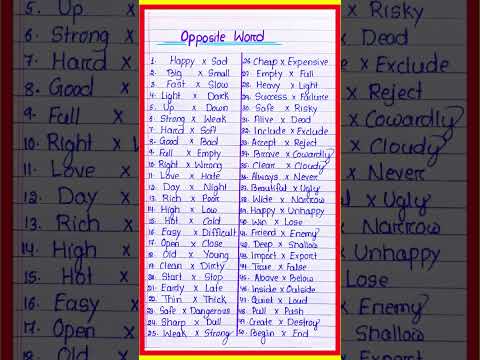 Opposite Word
1. Happy x Sad
2. Big x Small
3. Fast x Slow
4. Light x Dark
5. Up x Down
6. Strong x Weak
7. Hard x Soft
8. Good x Bad
9. Full x Empty
10. Right x Wrong
11. Love x Hate
12. Day x Night
13. Rich x Poor
14. High x Low
15. Hot x Cold
16. Easy x Difficult
17. Open x Close
18. Old x Young
19. Clean x Dirty
20. Start x Stop
21. Early x Late
22. Thin x Thick
23. Safe x Dangerous
24. Sharp x Dull
25. Weak x Strong
26. Cheap x Expensive
27. Empty x Full
28. Heavy x Light
29. Success x Failure
30. Safe x Risky
31. Alive x Dead
32. Include x Exclude
33. Accept x Reject
34. Brave x Cowardly
35. Clear x Cloudy
36. Always x Never
37. Beautiful x Ugly
38. Wide x Narrow
39. Happy x Unhappy
40. Win x Lose
41. Friend x Enemy
42. Deep x Shallow
43. Import x Export
44. True x False
45. Above x Below
46. Inside x Outside
47. Quiet x Loud
48. Pull x Push
49. Create x Destroy
50. Begin x End
5. Up x
6. Strong x
7. Hard x
8. Good x
9. Full x
10. Right x
11. Love x
12. Day x
13. Rich x
14. High x
15. Hot x
16. Easy x
17. Open x
18. Old x
x Risky
x Dead
x Exclude
x Reject
x Cowardly
x Cloudy
x Never
x Ugly
Narrow
Unhappy
Lose
Enemy
Shallow
Export